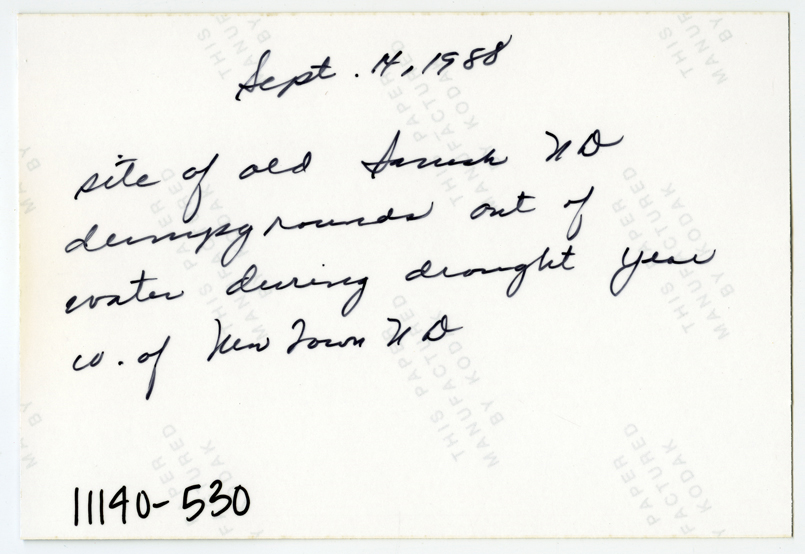 Sept. 14, 1988
site of old Sanish ND
dumpgrounds out of
water during drought year
w. of New Town ND
11140-530
THIS PAPER
MANUFACTURED
BY KODAK